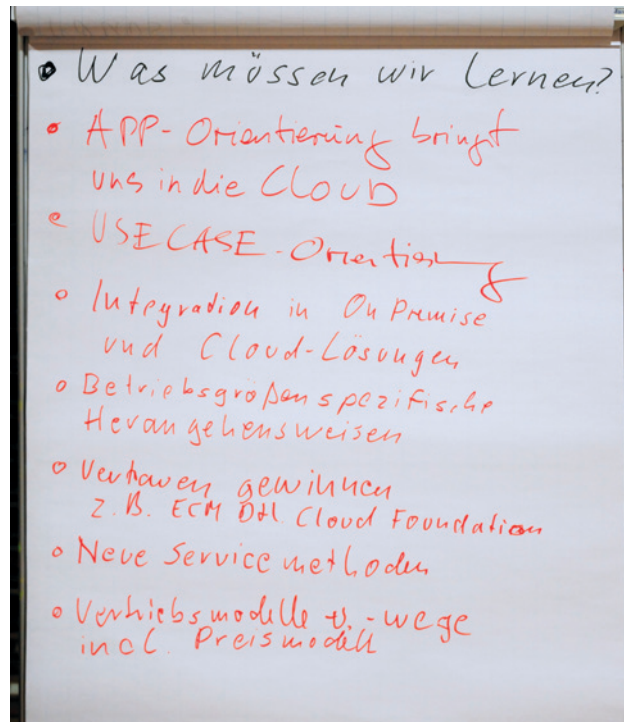 • Was müssen wir Lernen?
• APP-Orientierung bringt
uns in die CLOUD
• USECASE-Orientierung
• Integration in On Premise
und Cloud-Lösungen
• Betriebsgrößenspezifische
Herangehensweisen
• Vertrauen gewinnen
z.B. ECM Dtl. Cloud Foundation
• Neue Servicemethoden
• Vertriebsmodelle u. -wege
incl. Preismodell